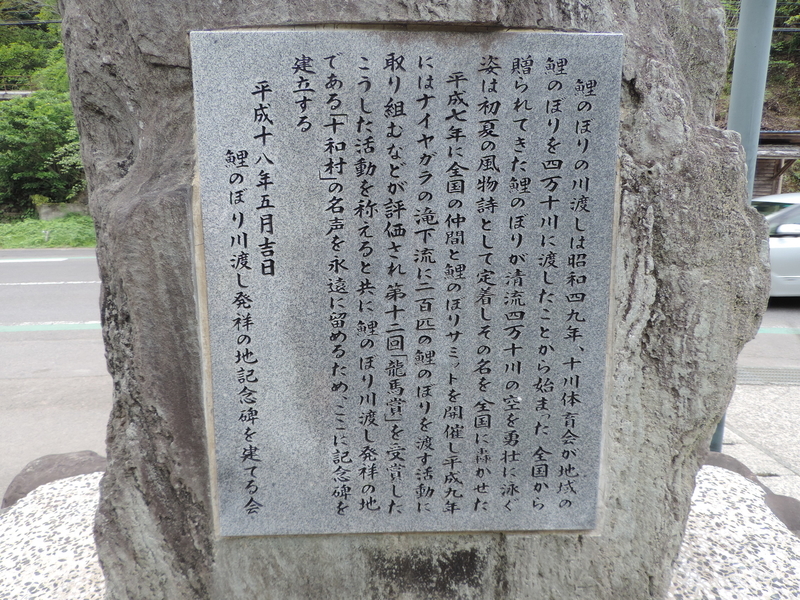 鯉のほりの川渡しは昭和四九年、十川体育会が地域の
鯉のほりを四万十川に渡したことから始まった 全国から
贈られてきた鯉のほりが清流四万十川の空を勇壮に泳ぐ
姿は初夏の風物詩として定着しその名を全国に轟かせた
平成七年に全国の仲間と鯉のほりサミットを開催し平成九年
にはナイヤガラの滝下流に二百匹の鯉のほりを渡す活動に
取り組むなどが評価され第十二回「龍馬賞」を受賞した
こうした活動を称えると共に鯉のほり川渡し発祥の地
である「十和村」の名声を永遠に留めるため、ここに記念碑を
建立する
平成十八年五月吉日
鯉のぼり川渡し発祥の地記念碑を建てる会